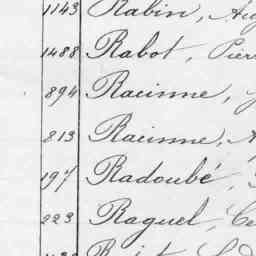 1143 Rabin,
1488 Rabot, Pier
894 Racinne,
813 Racinne, A
197 Radoubé,
223 Raguel, Ce